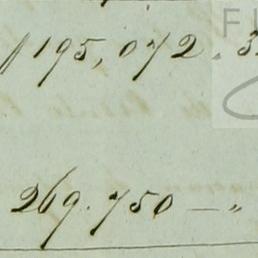 195,072. 3
269.750 — "